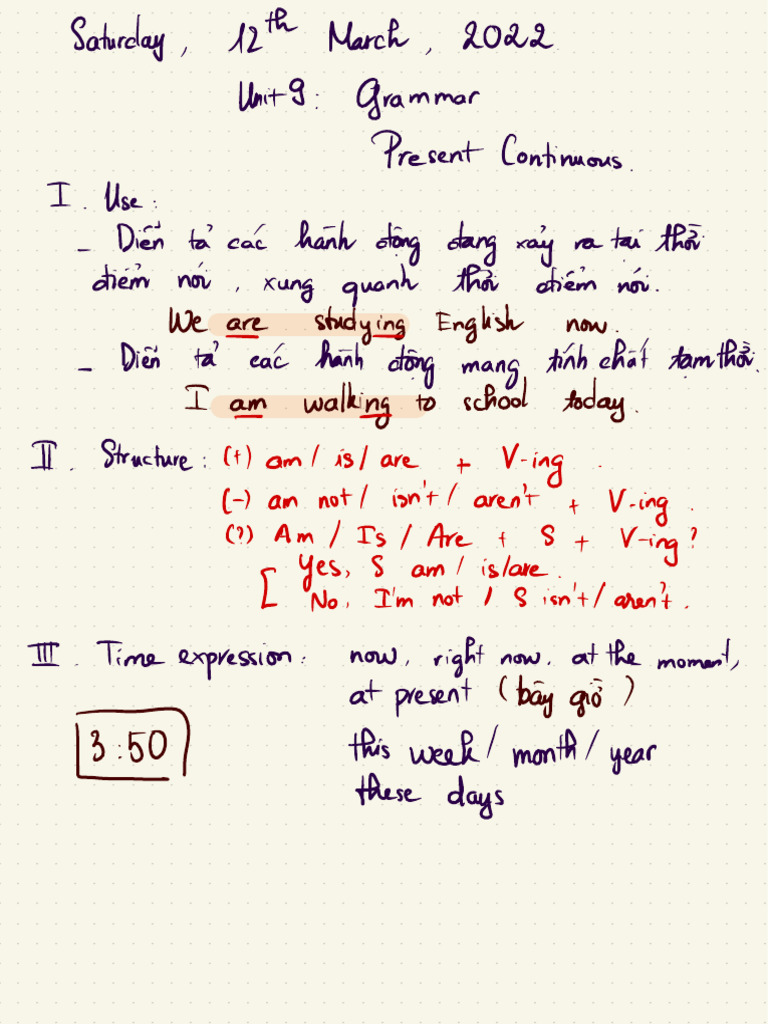 Saturday, 12th March, 2022
Unit 9: Grammar
Present Continuous.
I. Use:
- Diễn tả các hành động đang xảy ra tại thời
điểm nói, xung quanh thời điểm nói.
We are studying English now.
- Diễn tả các hành động mang tính chất tạm thời.
I am walking to school today.
II. Structure: (+) am / is / are + V-ing.
(-) am not / isn't / aren't + V-ing.
(?) Am / Is / Are + S + V-ing?
[ Yes, S am / is/are.
No, I'm not / S isn't / aren't.
III. Time expression: now, right now, at the moment,
at present (bây giờ)
3:50 this week / month / year
these days